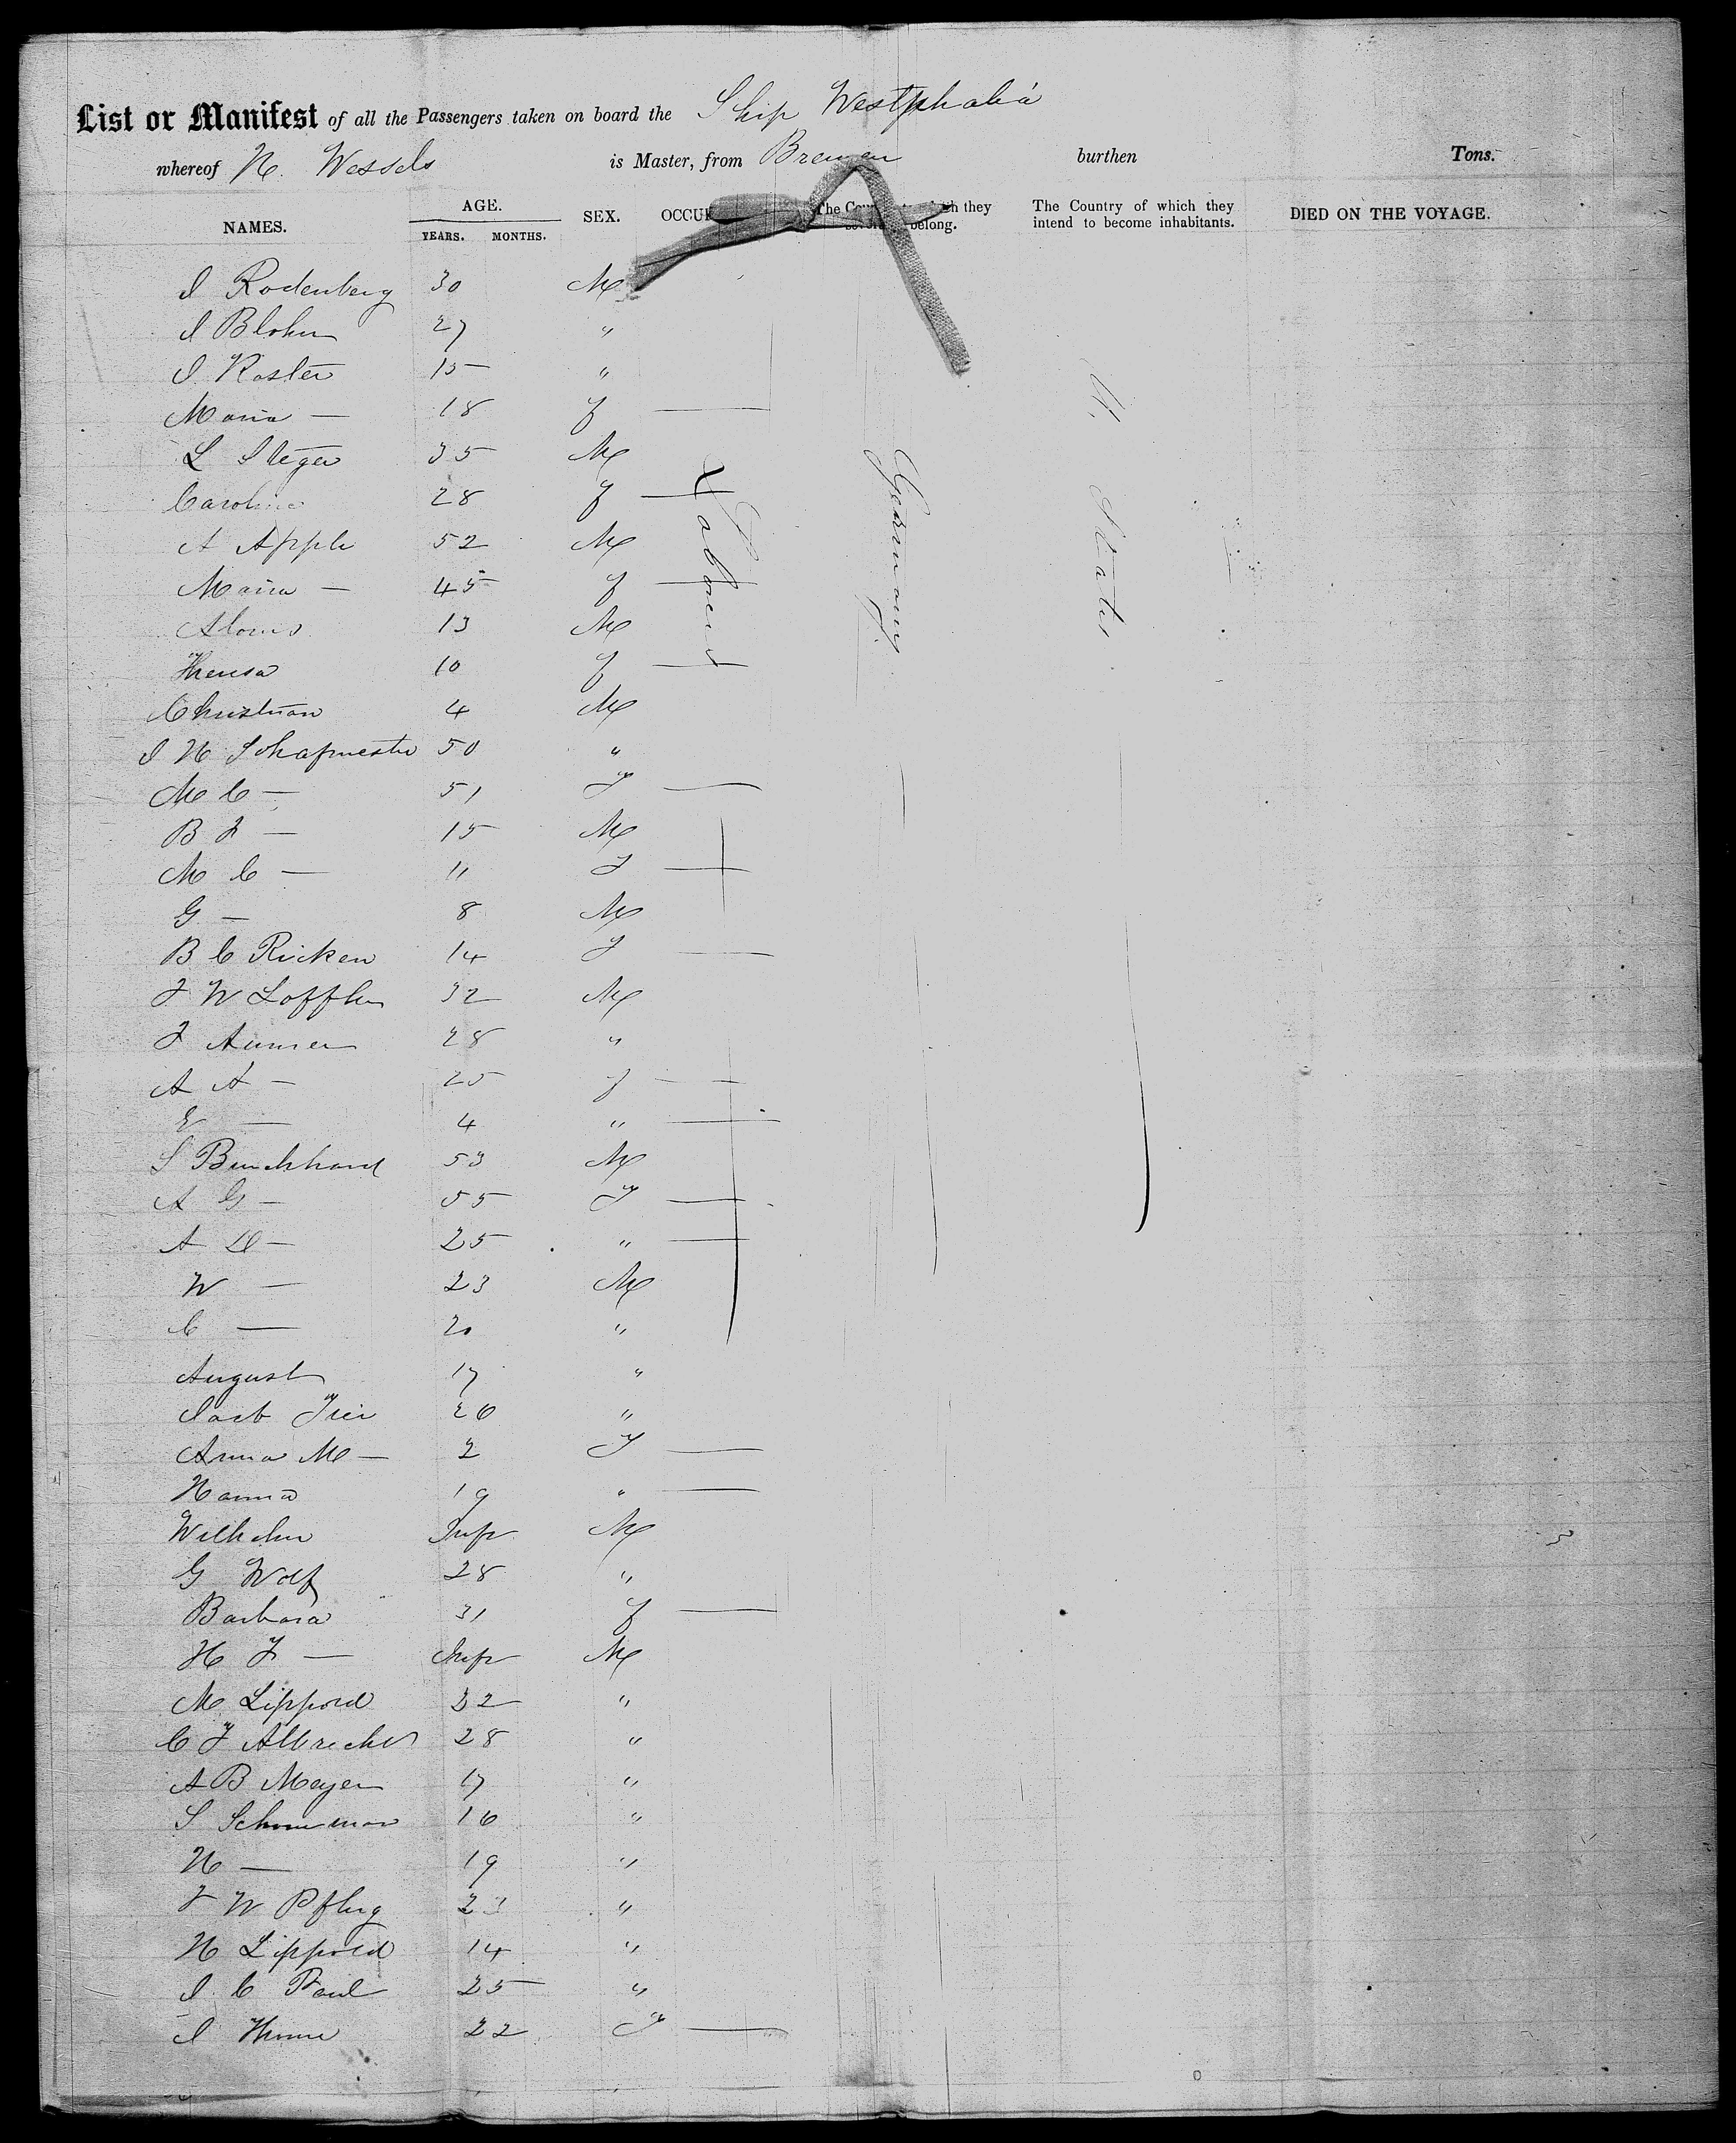 List or Manifest of all the Passengers taken on board the Ship Westphalia
whereof H. Wessels is Master, from Bremen burthen Tons.
NAMES. AGE. YEARS. MONTHS. SEX. OCCU The they belong. The Country of which they intend to become inhabitants. DIED ON THE VOYAGE.
Laborers
Germany
U. States
I Rodenberg 30 M
I Blohm 27 "
I Koster 15 "
Maria — 18 f —
L Steger 35 M
Carolina 28 f —
A Apple 52 M
Maria — 45 f —
Alouis 13 M
Theresa 10 f —
Christian 4 M
I H Schapmester 50 "
M C — 51 F —
B F — 15 M
M C — 11 F —
G — 8 M
B C Ricken 14 F —
F W Loffler 32 M
F 28 "
A A — 25 f —
E — 4 " —
S Burckhard 53 M
A G — 55 F —
A D — 25 " —
W — 23 M
C — 20 "
August 17 "
26 "
Anna M — 2 F —
Hanna 19 " —
Wilhelm Inf M
G Wolf 28 "
Barbara 31 f —
H F — Inf M
M Lippold 32 "
C F Albrecht 28 "
A B Meyer 17 "
S 16 "
H — 19 "
F W Pflug "
H Lippold 14 "
I C Paul 25 "
I Thume 22 F —